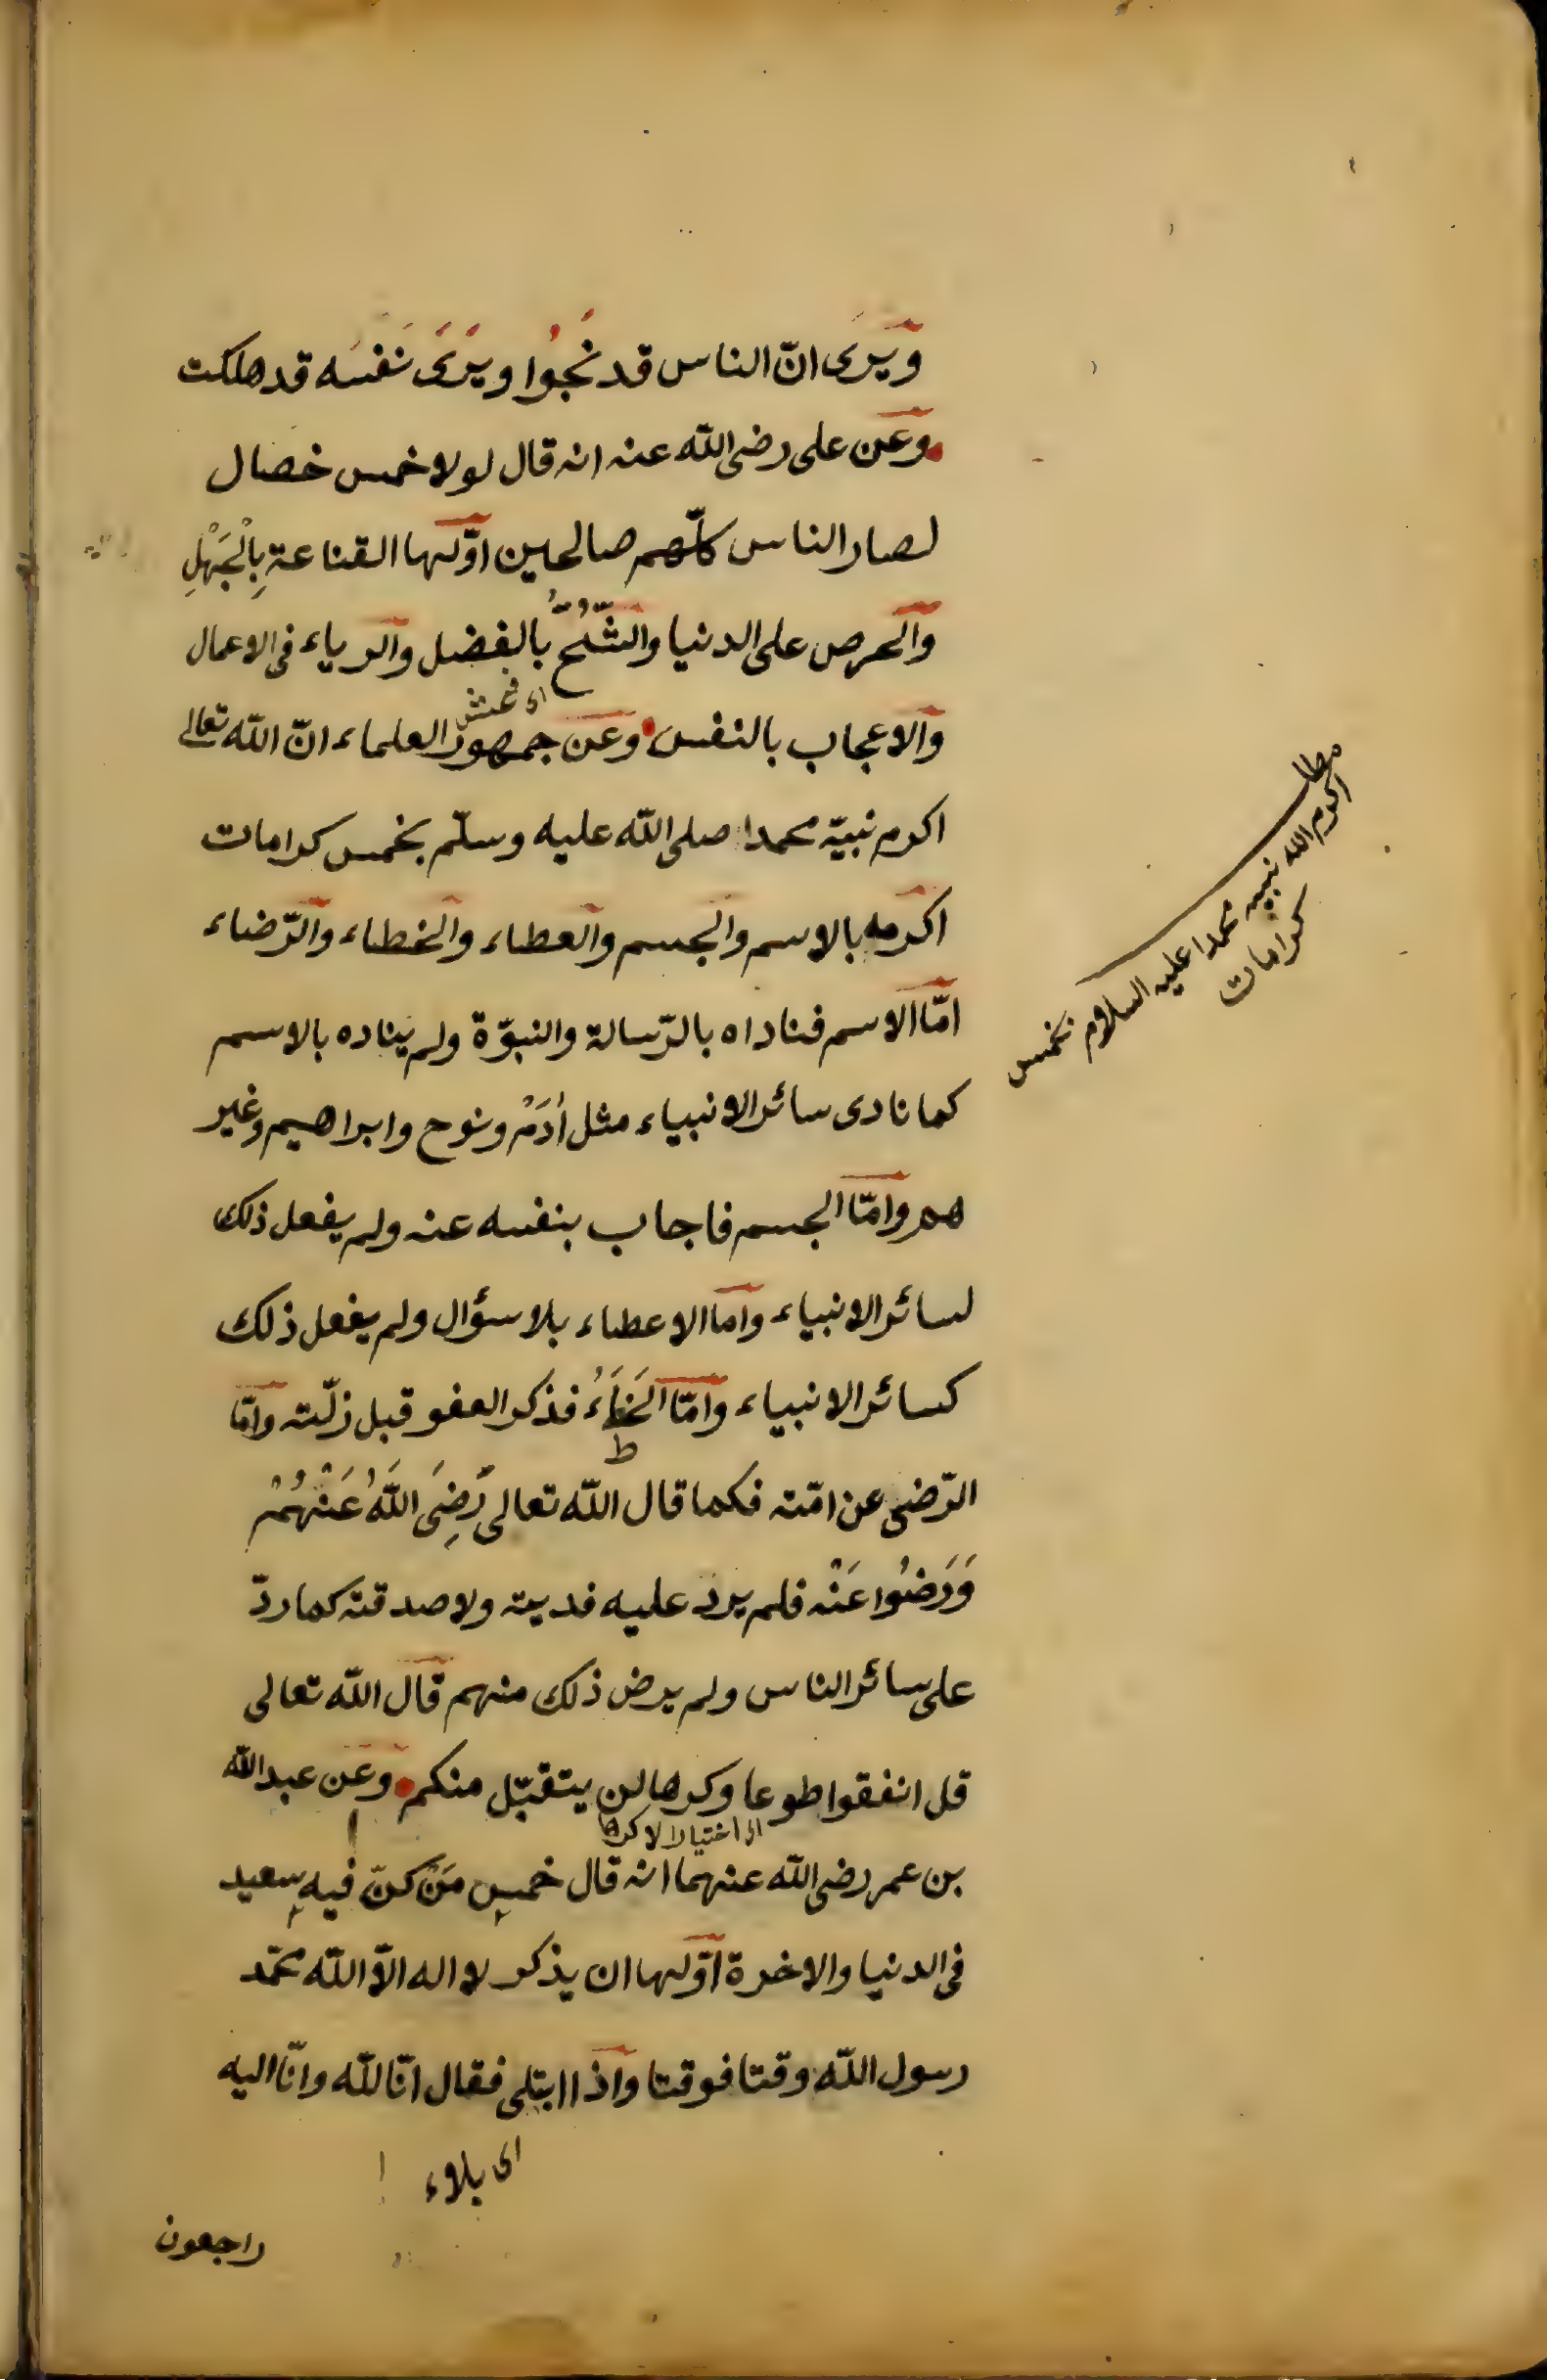 ويرى انّ الناس قد نَجُوا ويَرَى نفسَه قد هلكت
وعن على رضى اللّه عنه انه قال لولا خمس خصال
لصار الناس كلّهم صالحين اوّلها القناعة بِالْجَهْلِ
والحرص على الدنيا والشُّحُّ بالفضل والرياء فى الاعمال
والاعجاب بالنفس وعن جمهور العلماء انّ اللّه تعالى
اكرم نبيّه محمدا صلى اللّه عليه وسلّم بخمس كرامات
اكرمه بالاسم والجسم والعطاء والخطاء والرّضاء
امّا الاسم فناداه بالرّسالة والنبوّة ولم يناده بالاسم
كما نادى سائر الانبياء مثل أدَمْ ونوح وابراهيم وغير
هم وامّا الجسم فاجاب بنفسه عنه ولم يفعل ذلك
لسائر الانبياء واما الاعطاء بلا سؤال ولم يفعل ذلك
كسائر الانبياء وامّا الخَطَاءُ فذكر العفو قبل زلّته وامّا
ط
الرّضى عن امّته فكما قال اللّه تعالى رَضِىَ اللَّهُ عَنْهُمْ
وَرَضُوا عَنْه فلم يرد عليه فديته ولا صدقته كما ردّ
على سائر الناس ولم يرض ذلك منهم قال اللّه تعالى
قل انفقوا طوعا وكرها لن يتقبّل منكم وعن عبد اللّه
بن عمر رضى اللّه عنهما انه قال خمس مَنْ كنّ فيه سعيد
فى الدنيا والاخرة اوّلها ان يذكر لا اله الّا اللّه محمّد
رسول اللّه وقتا فوقتا واذا ابتلى فقال انّا للّه وانّا اليه
اى بلاء
راجعون
اكرم الله نبيه محمدا عليه السلام بخمس
كرامات